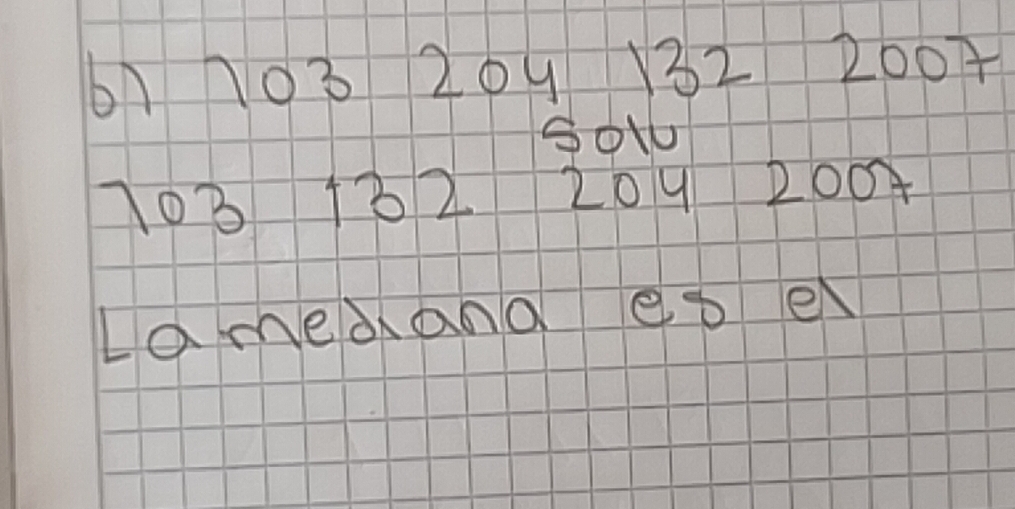 b) 103 204 132 2007
Solu
103 132 204 2007
La mediana es el